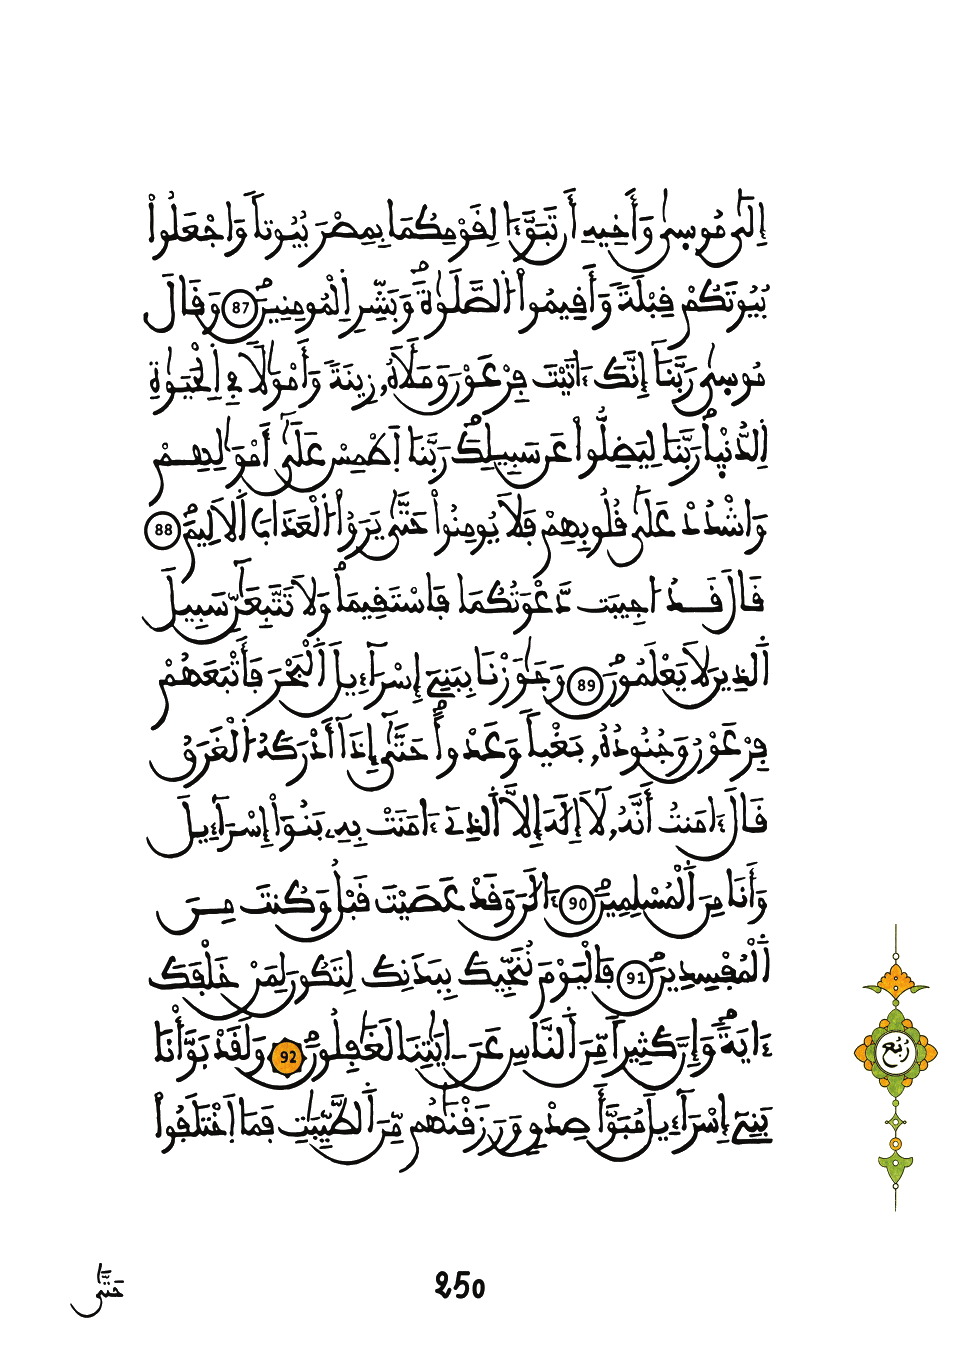 إِلَىٰ مُوسَىٰ وَأَخِيهِ أَن تَبَوَّءَا لِقَوْمِكُمَا بِمِصْرَ بُيُوتاً وَاجْعَلُواْ
بُيُوتَكُمْ قِبْلَةً وَأَقِيمُواْ الصَّلَوٰةَ وَبَشِّرِ اِلْمُومِنِينَ 87 وَقَالَ
مُوسَىٰ رَبَّنَا إِنَّكَ ءَاتَيْتَ فِرْعَوْنَ وَمَلَأَهُۥ زِينَةً وَأَمْوَٰلاً فِي اِلْحَيَوٰةِ
اِلدُّنْيَا رَبَّنَا لِيَضِلُّواْ عَن سَبِيلِكَ رَبَّنَا اَطْمِسْ عَلَىٰ أَمْوَٰلِهِمْ
وَاشْدُدْ عَلَىٰ قُلُوبِهِمْ فَلَا يُومِنُواْ حَتَّىٰ يَرَوُاْ الْعَذَابَ اَلَالِيمَ 88
قَالَ قَدُ اجِيبَت دَّعْوَتُكُمَا فَاسْتَقِيمَا وَلَا تَتَّبِعَٰنِّ سَبِيلَ
اَلذِينَ لَا يَعْلَمُونَ 89 وَجَٰوَزْنَا بِبَنِي إِسْرَآءِيلَ اَلْبَحْرَ فَأَتْبَعَهُمْ
فِرْعَوْنُ وَجُنُودُهُۥ بَغْياً وَعَدْواً حَتَّىٰ إِذَا أَدْرَكَهُ الْغَرَقُ
قَالَ ءَامَنتُ أَنَّهُۥ لَا إِلَٰهَ إِلَّا اَلذِي ءَامَنَتْ بِهِۦ بَنُواْ إِسْرَآءِيلَ
وَأَنَا مِنَ اَلْمُسْلِمِينَ 90 ءَالَٰنَ وَقَدْ عَصَيْتَ قَبْلُ وَكُنتَ مِنَ
اَلْمُفْسِدِينَ 91 فَالْيَوْمَ نُنَجِّيكَ بِبَدَنِكَ لِتَكُونَ لِمَنْ خَلْفَكَ
ءَايَةً وَإِنَّ كَثِيراً مِّنَ اَلنَّاسِ عَنَ ءَايَٰتِنَا لَغَٰفِلُونَ 92 وَلَقَدْ بَوَّأْنَا
بَنِي إِسْرَآءِيلَ مُبَوَّأَ صِدْقٍ وَرَزَقْنَٰهُم مِّنَ اَلطَّيِّبَٰتِ فَمَا اَخْتَلَفُواْ
رُبُع
250
حَتَّىٰ